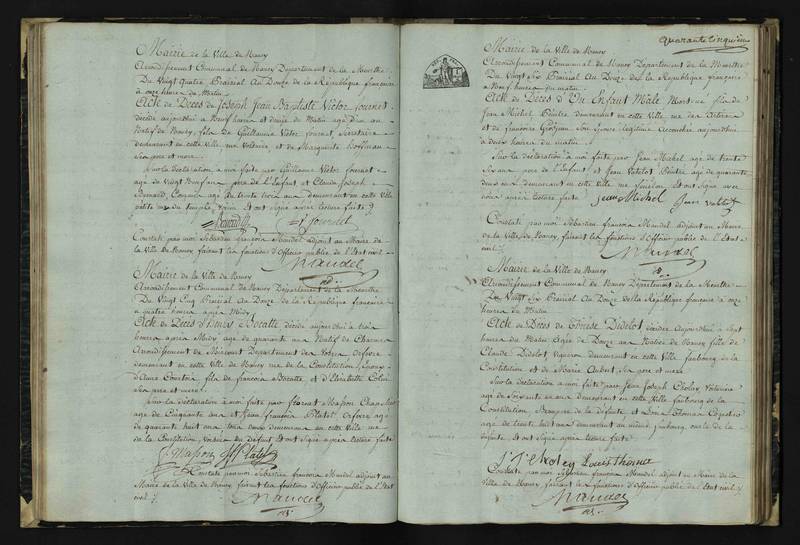 Mairie de la Ville de Nancy
Arrondissement Communal de Nancy Département de la Meurthe
Du Vingt quatre Prairial An Douze de la République française
à onze heures du Matin
Acte de Décès de Joseph Jean Baptiste Victor Journet
décédé aujourd'hui à Neuf heures et demie du Matin agé d'un an
Natif de Nancy, fils de Guillaume Victor Journet, Secretaire
demeurant en cette Ville, rue Voltaire, et de Marguerite Hoffman
Ses pere et mere
Sur la déclaration à moi faite par Guillaume Victor Journet
agé de Vingt Neuf ans pere de l'Enfant et Claude Joseph
agé de trente trois ans demeurant en cette Ville
petite rue du temple, et ont Signé après lecture faite
Journet
Constaté par moi Sébastien françois Mandel adjoint au Maire de
la Ville de Nancy, faisant les fonctions d'Officier public de l'Etat civil
Mandel
adj.
Mairie de la Ville de Nancy
Arrondissement Communal de Nancy Département de la Meurthe
Du Vingt Cinq Prairial An Douze de la République française
à quatre heures après Midy
Acte de Décès d'Henry Bocatte décédé aujourd'hui à trois
heures après Midy agé de quarante ans Natif de Charmes
Arrondissement de Mirecourt Département des Vosges Orfevre
demeurant en cette Ville de Nancy rue de la Constitution, Epoux
d'Anne Courtois fils de françois Bocatte et d'Elisabeth Colin
Ses pere et mere
Sur la déclaration à moi faite par Florent Masson
agé de Cinquante ans et Jean françois Platel Orfevre agé
de quarante huit ans tous deux demeurans en cette Ville rue
de la Constitution, Voisins du défunt et ont Signé après lecture faite
Masson Platel
Constaté par moi Sébastien françois Mandel adjoint au
Maire de la Ville de Nancy, faisant les fonctions d'Officier public de l'Etat
civil
Mandel
adj.
quarante Cinquième
Mairie de la Ville de Nancy
Arrondissement Communal de Nancy Département de la Meurthe
Du Vingt Six Prairial An Douze de la République française
à Neuf heures du matin
Acte de Décès d'Un Enfant Mâle Mort né fils de
Jean Michel Peintre demeurant en cette Ville rue
et de françoise Grosjean Son Epouse légitime accouchée aujourd'hui
à deux heures du matin
Sur la déclaration à moi faite par Jean Michel agé de trente
Six ans pere de l'Enfant et Jean Vatelot Peintre agé de quarante
deux ans demeurant en cette Ville rue et ont Signé avec
nous après lecture faite Jean Michel Jean Vatelot
Constaté par moi Sébastien françois Mandel adjoint au Maire
de la Ville de Nancy, faisant les fonctions d'Officier public de l'Etat
civil
Mandel
adj.
Mairie de la Ville de Nancy
Arrondissement Communal de Nancy Département de la Meurthe
Du Vingt Six Prairial An Douze de la République française à onze
heures du Matin
Acte de Décès de Thérèse Didelot décédée Aujourd'hui à
heures du Matin Agée de Douze ans Native de Nancy fille de
Claude Didelot Vigneron demeurant en cette Ville faubourg de la
Constitution et de Marie Aubert Ses pere et mere
Sur la déclaration à moi faite par Jean Joseph Choley
agé de Soixante et un ans demeurant en cette Ville faubourg de la
Constitution, de la défunte et Louis Thomas
agé de trente huit ans demeurant au même faubourg, de la
défunte et ont Signé après lecture faite
J J Choley Louis Thomas
Constaté par moi Sébastien françois Mandel adjoint au Maire de la
Ville de Nancy, faisant les fonctions d'Officier public de l'Etat civil
Mandel
adj.